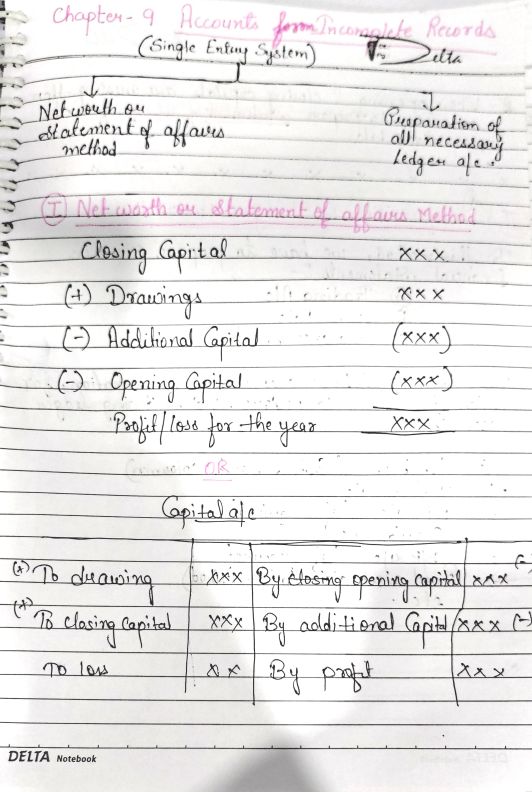 Chapter-9 Accounts from Incomplete Records
(Single Entry System) Delta
Net worth or
statement of affairs
method
Preparation of
all necessary
Ledger a/c.
(I) Net worth or Statement of affairs Method
Closing Capital XXX
(+) Drawings XXX
(-) Additional Capital (XXX)
(-) Opening Capital (XXX)
Profit/loss for the year XXX
OR
Capital a/c
(+) To drawing XXX By closing opening capital XXX (-)
(+) To closing capital XXX By additional Capital XXX (-)
To loss XX By profit XXX
DELTA Notebook